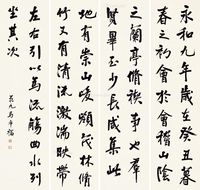 永和九年歲在癸丑暮
春之初會於會稽山陰
之蘭亭脩禊事也群
賢畢至少長咸集此
地有崇山峻嶺茂林脩
竹又有清流激湍映帶
左右引以為流觴曲水列
坐其次